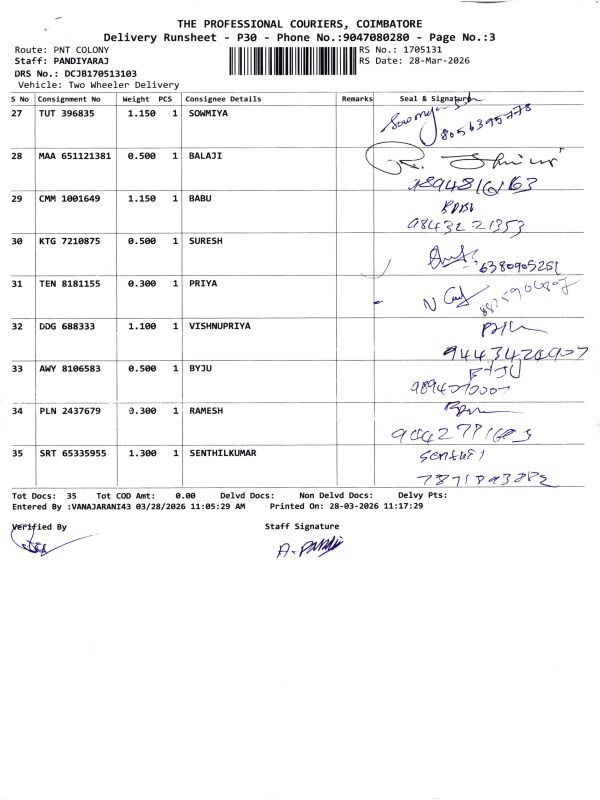 THE PROFESSIONAL COURIERS, COIMBATORE
Delivery Runsheet - P30 - Phone No.:9047080280 - Page No.:3
Route: PNT COLONY RS No.: 1705131
Staff: PANDIYARAJ RS Date: 28-Mar-2026
DRS No.: DCJB170513103
Vehicle: Two Wheeler Delivery
S No Consignment No Weight PCS Consignee Details Remarks Seal & Signature
27 TUT 396835 1.150 1 SOWMIYA
8056395778
28 MAA 651121381 0.500 1 BALAJI
29 CMM 1001649 1.150 1 BABU
9843221353
30 KTG 7210875 0.500 1 SURESH
6380905251
31 TEN 8181155 0.300 1 PRIYA
32 DDG 688333 1.100 1 VISHNUPRIYA
33 AWY 8106583 0.500 1 BYJU
34 PLN 2437679 0.300 1 RAMESH
35 SRT 65335955 1.300 1 SENTHILKUMAR
Senthil
Tot Docs: 35 Tot COD Amt: 0.00 Delvd Docs: Non Delvd Docs: Delvy Pts:
Entered By :VANAJARANI43 03/28/2026 11:05:29 AM Printed On: 28-03-2026 11:17:29
Verified By Staff Signature